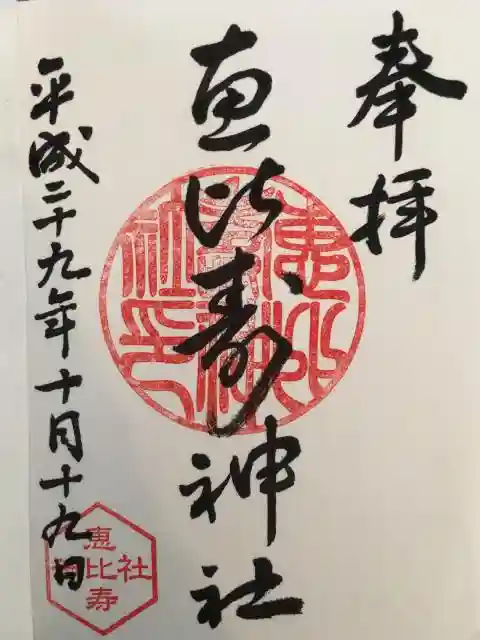 奉拝
恵比寿神社
平成二十九年十月十九日
恵比寿
神社